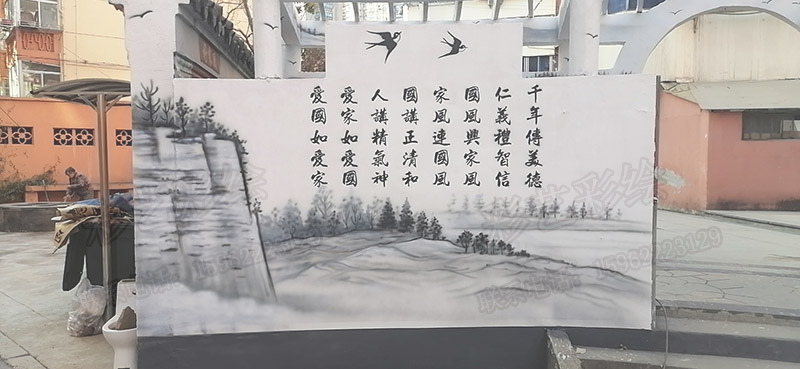 千年傳美德
仁義禮智信
國風興家風
家風連國風
國講正清和
人講精氣神
愛家如愛國
愛國如愛家
彩艺彩绘
联系电话：15982223129